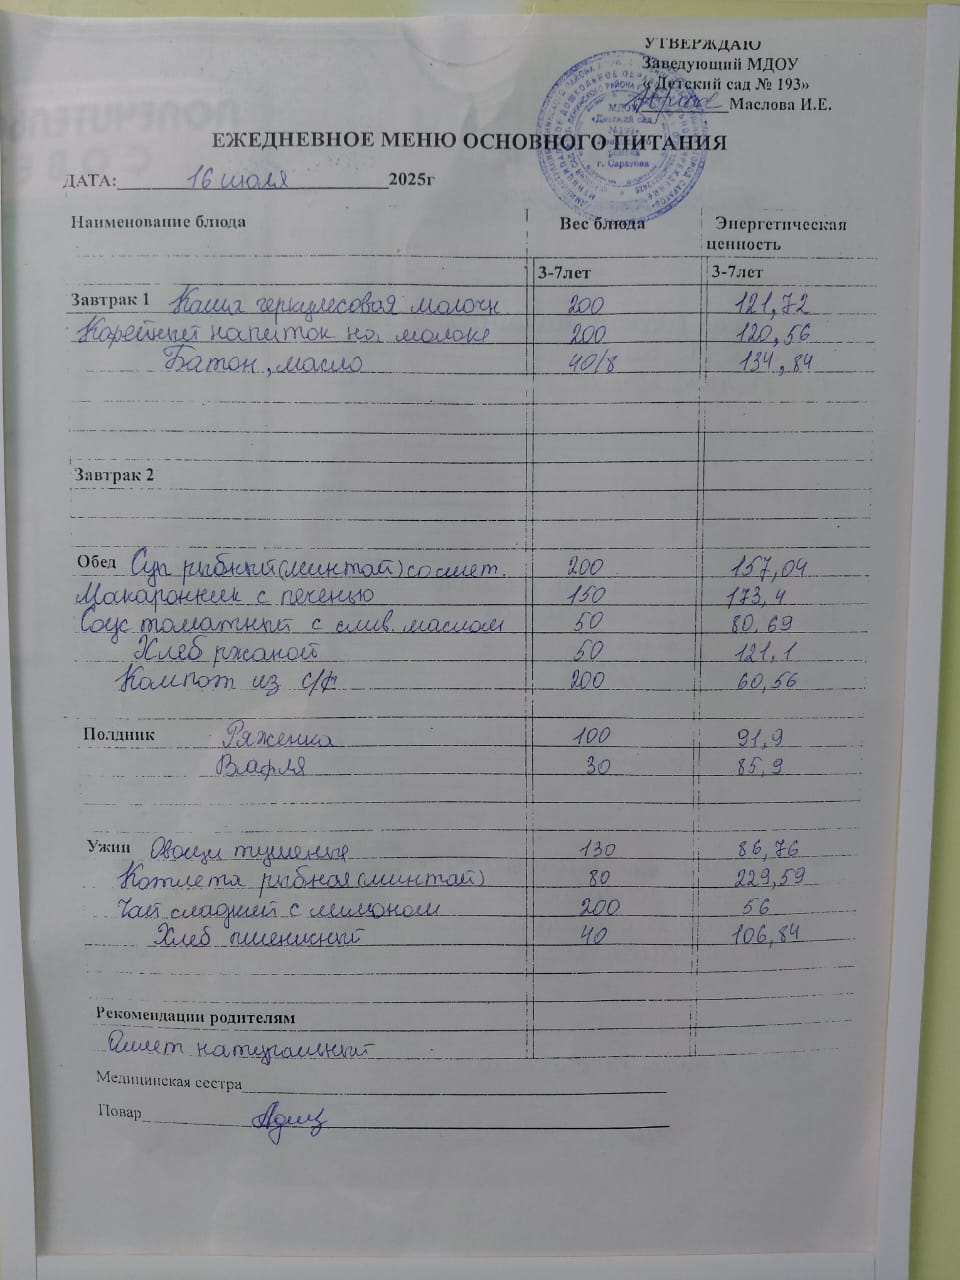 УТВЕРЖДАЮ
Заведующий МДОУ
« Детский сад № 193»
Маслова И.Е.
ЕЖЕДНЕВНОЕ МЕНЮ ОСНОВНОГО ПИТАНИЯ
ДАТА: 16 июля 2025г
Наименование блюда Вес блюда Энергетическая ценность
3-7лет 3-7лет
Завтрак 1 Каша геркулесовая молочн 200 121,72
Кофейный напиток на молоке 200 120,56
Батон, масло 40/8 134,84
Завтрак 2
Обед Суп рыбный(минтай) со смет. 200 157,04
Макаронник с печенью 150 173,4
Соус томатный с слив. маслом 50 80,69
Хлеб ржаной 50 121,1
Компот из с/ф 200 60,56
Полдник Ряженка 100 91,9
Вафля 30 85,9
Ужин Овощи тушеные 130 86,76
Котлета рыбная(минтай) 80 229,59
Чай сладкий с лимоном 200 56
Хлеб пшеничный 40 106,84
Рекомендации родителям
Омлет натуральный
Медицинская сестра
Повар